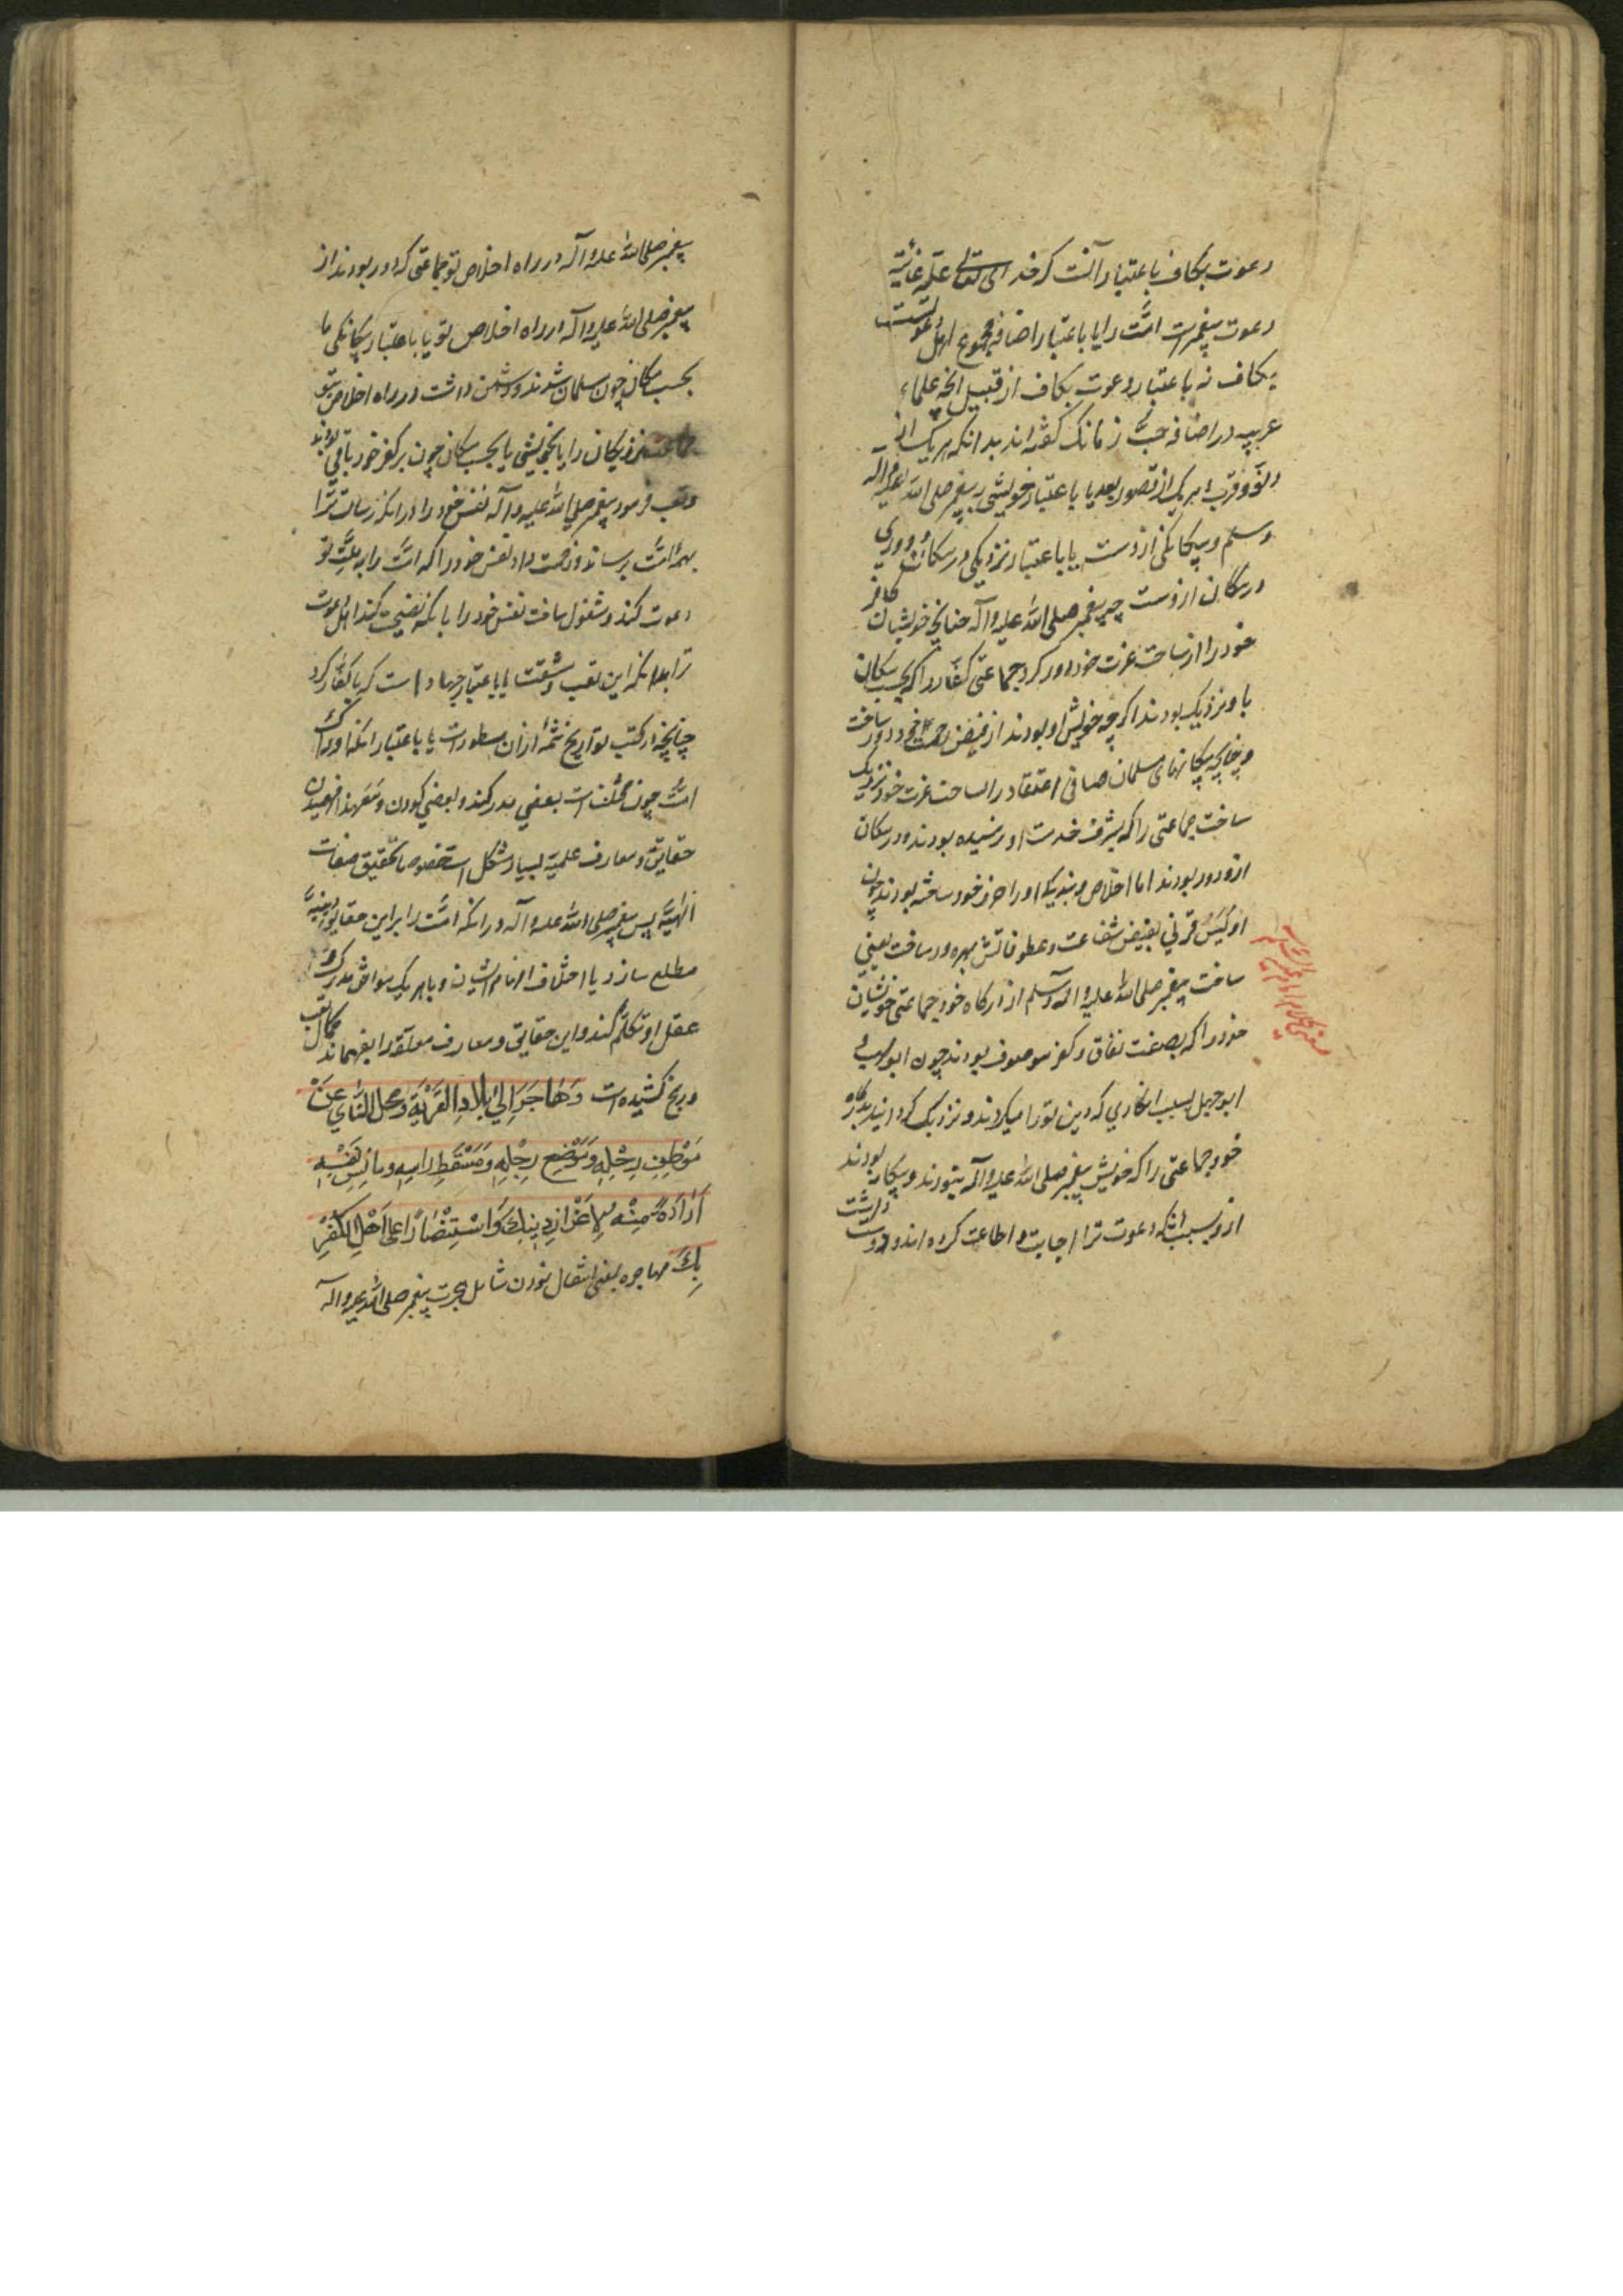 دعوت بکاف باعتبار آنست که خدای تعالی علة غائیة
دعوت پیغمبرست امّت را یا باعتبار اضافه مجموع اهل دعوتست
بکاف نه باعتبار دعوت بکاف از قبیل آنچه علماء
عربیه در اضافه حبّ زمانک گفته اند بدانکه هر یک از
دنوّ و قرب هر یک از قصور بعد یا باعتبار خویشی به پیغمبر صلی الله علیه و آله
و سلم و بیگانگی ازوست یا باعتبار نزدیکی در مکان و دوری
در مکان ازوست چه پیغمبر صلی الله علیه و آله چنانچه خویشان کافر
خود را از ساحت عزت خود دور کرد جماعتی کفّار را که بحسب مکان
باو نزدیک بودند اگر چه خویش او بودند از فیض رحمت خود دور ساخت
و چنانچه بیگانهای مسلمان صافی اعتقاد را بساحت عزت خود نزدیک
ساخت جماعتی را که بشرف خدمت او نرسیده بودند و در مکان
ازو دور بودند اما اخلاص و بندیگ او را حرز خود ساخته بودند چون
اویس قرنی بفیض شفاعت و عطوفاتش بهره ور ساخت یعنی
ساخت پیغمبر صلی الله علیه و آله و سلم از درگاه خود جماعتی خویشان
خود را که بصفت نفاق و کفر موصوف بودند چون ابو لهب و
ابو جهل بسبب انکاری که دین تو را میکردند و نزدیک گردانید بدرگاه
خود جماعتی را که خویش پیغمبر صلی الله علیه و آله نبودند و بیگانه بودند
ازو بسبب آنکه دعوت ترا اجابت و اطاعت کرده اند و دوست داشت
پیغمبر صلی الله علیه و آله در راه اخلاص تو جماعتی که دور بودند از
پیغمبر صلی الله علیه و آله در راه اخلاص تو یا باعتبار بیگانگی یا
بحسب مکان چون مسلمان شدند و دشمن داشت در راه اخلاص تو
جماعت نزدیکان را یا بخویشی یا بحسب مکان چون بر کفر خود باقی بودند
و تعب فرمود پیغمبر صلی الله علیه و آله نفس خود را در آنکه رسالت ترا
بهمه امّت برساند و زحمت داد نفس خود را که امّت را به ملّت تو
دعوت کند و مشغول ساخت نفس خود را بآنکه نصیحت کند اهل دعوت
ترا بدانکه این تعب و مشقت یا باعتبار جهاد است که با کفار کرد
چنانچه از کتب تواریخ شمّه ازان مسطورست یا باعتبار آنکه ادراک
امّت چون مختلف است بعضی مدرکند و بعضی کودن و معهذا فهمیدن
حقایق و معارف علمیه بسیار مشکل است خصوصا تحقیق صفات
الهیّه پس پیغمبر صلی الله علیه و آله در آنکه امّت را بر این حقایق دینیّه
مطلع سازد با اختلاف افهام ایشان و با هر یک موافق مدرک و
عقل او تکلّم کند و این حقایق و معارف مغلقه را بفهماند کمال تعب
و رنج کشیده است وَهاجَرَ اِلیٰ بِلادِ الغُرْبَةِ وَمحلِّ النَّأْیِ عَنْ
مَوْطِنِ رِحْلِهِ وَمَوْضِعِ رِجْلِهِ وَمَسْقَطِ رَأسِهِ وَمَأنَسِ نَفْسِهِ
اِرَادَةً مِنْهُ لِاِعْزازِ دِینِكَ وَاسْتِنْصَاراً عَلی اَهْلِ الکُفْرِ
بِكَ مهاجره یعنی انتقال نمودن شامل هجرت پیغمبر صلی الله علیه و آله